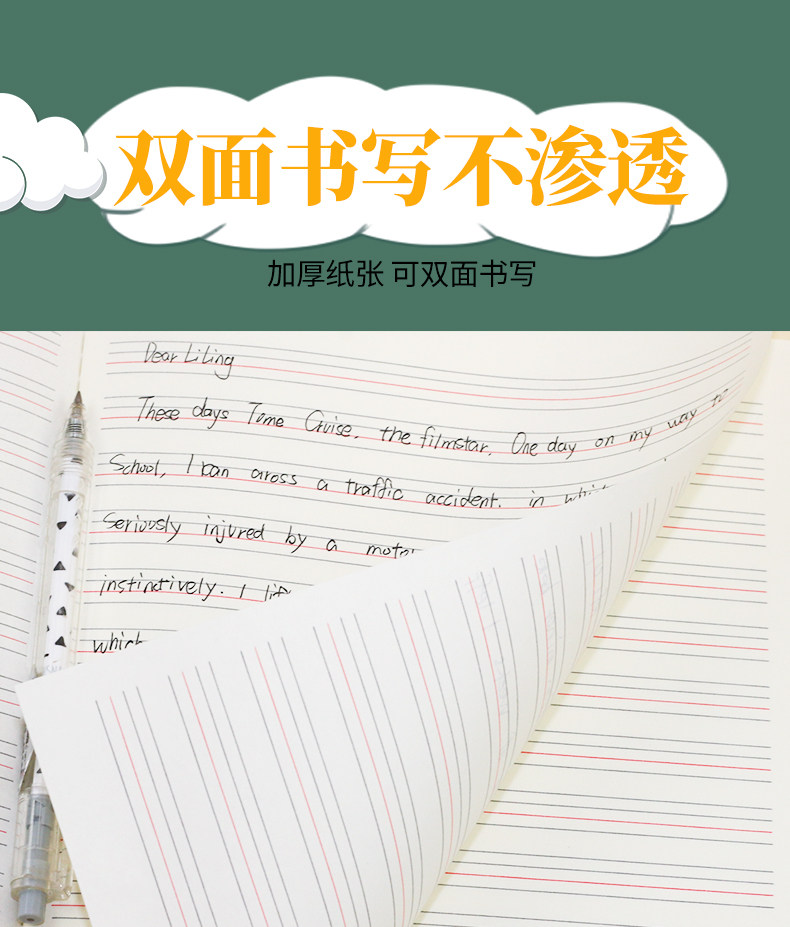 双面书写不渗透
加厚纸张 可双面书写
Dear Liling
These days Tome Cruise, the filmstar. One day on my way to
School, I ran aross a traffic accident. in
Seriously injured by a
instinctively. I
which